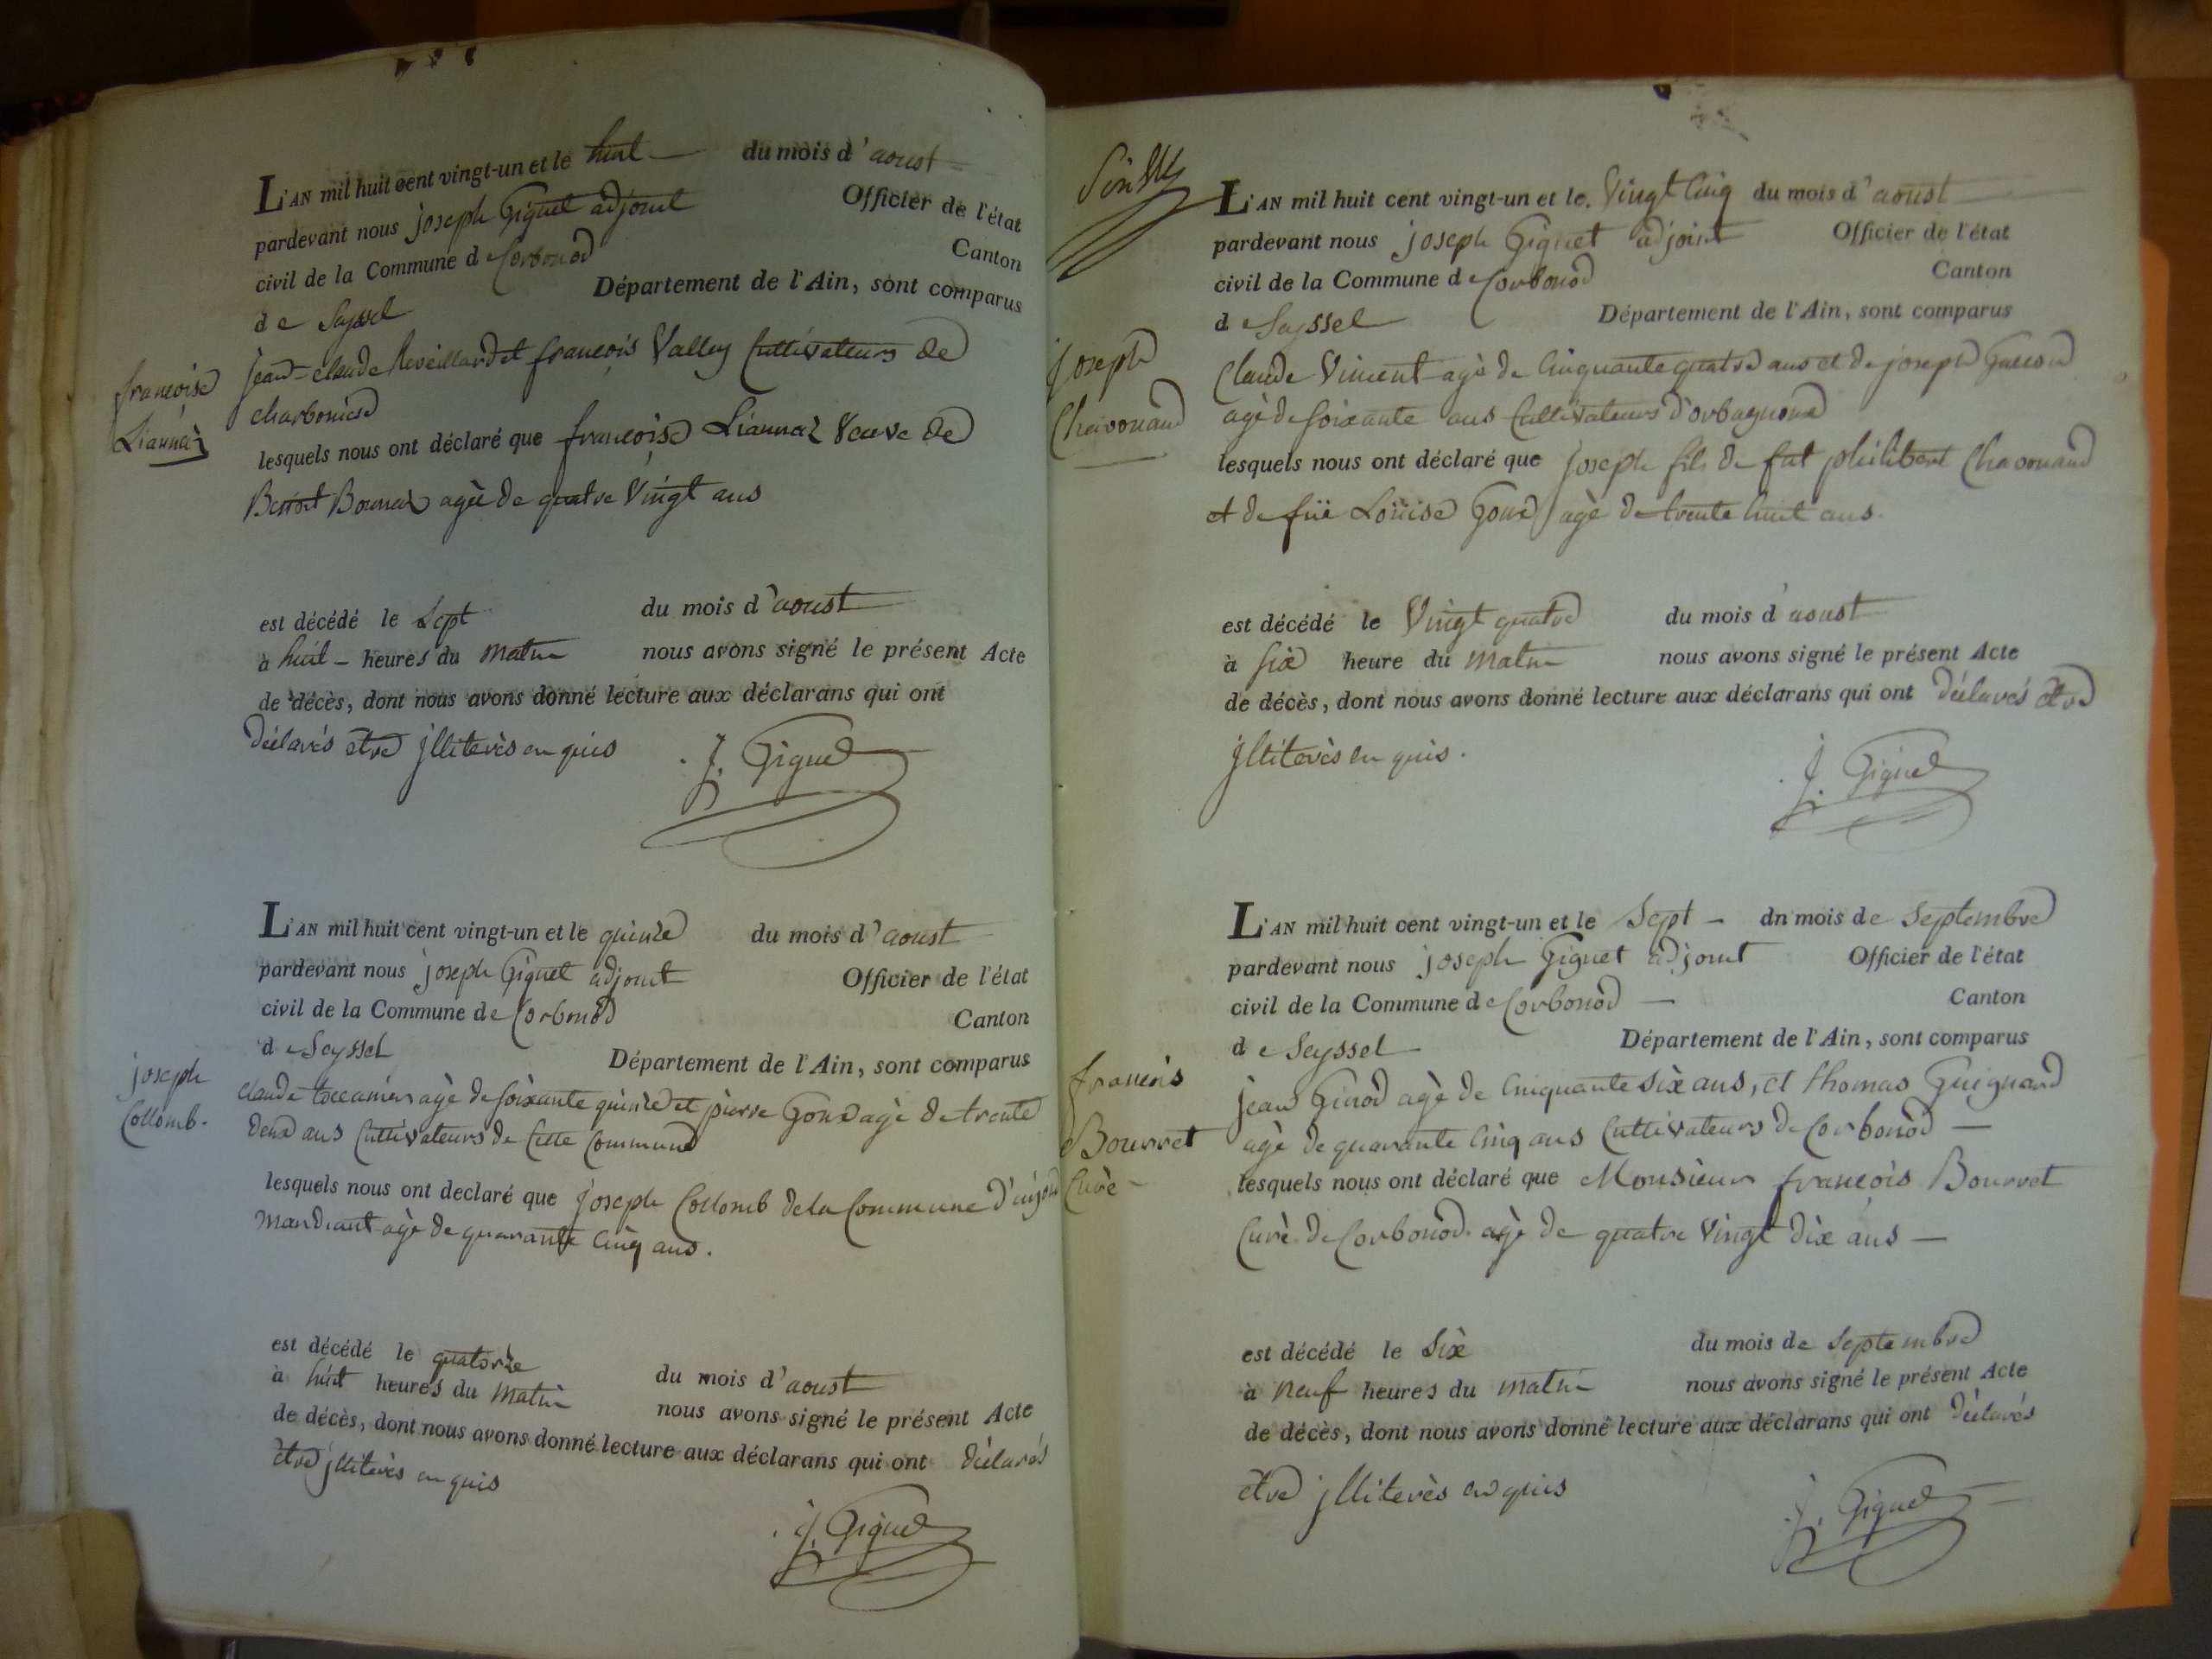 L'AN mil huit cent vingt-un et le huit du mois d'aoust
pardevant nous joseph Giguet adjoint Officier de l'état
civil de la Commune de Corbonod Canton
de Seyssel Département de l'Ain, sont comparus
françoise
Jean-claude Reveillard et françois Valley Cultivateurs de
Liannaz
charboniere
lesquels nous ont déclaré que françoise Liannaz Veuve de
Benoit Bonnaz agèe de quatre Vingt ans
est décédé le Sept du mois d'aoust
à huit heures du matin nous avons signé le présent Acte
de décès, dont nous avons donné lecture aux déclarans qui ont
déclarés etre jlliterès en quis
J. Giguet
L'AN mil huit cent vingt-un et le quinze du mois d'aoust
pardevant nous joseph Giguet adjoint Officier de l'état
civil de la Commune de Corbonod Canton
de Seyssel Département de l'Ain, sont comparus
joseph
Collomb.
claude agè de soixante quinze et pierre Gonz agè de trente
deux ans Cultivateurs de Cette Commune
lesquels nous ont declaré que joseph Collomb de la Commune
mandiant agè de quarante Cinq ans.
est décédé le quatorze du mois d'aoust
à huit heures du matin nous avons signé le présent Acte
de décès, dont nous avons donné lecture aux déclarans qui ont déclarés
etre jlliterès en quis
J. Giguet
L'AN mil huit cent vingt-un et le Vingt Cinq du mois d'aoust
pardevant nous joseph Giguet adjoint Officier de l'état
civil de la Commune de Corbonod Canton
de Seyssel Département de l'Ain, sont comparus
joseph
Chavonand
Claude Vincent agè de Cinquante quatre ans et de joseph
agè de soixante ans Cultivateurs d'orbagnoux
lesquels nous ont déclaré que joseph fils de fut philibert Chavonand
et de füe Loüise Gonz agè de trente huit ans.
est décédé le Vingt quatre du mois d'aoust
à six heure du matin nous avons signé le présent Acte
de décès, dont nous avons donné lecture aux déclarans qui ont déclarés etre
jlliterès en quis.
J. Giguet
L'AN mil huit cent vingt-un et le Sept dn mois de Septembre
pardevant nous joseph Giguet adjoint Officier de l'état
civil de la Commune de Corbonod Canton
de Seyssel Département de l'Ain, sont comparus
françois
Bourret
Curè
jean Ginod agè de Cinquante Six ans, et thomas Guignard
agè de quarante Cinq ans Cultivateurs de Corbonod
lesquels nous ont déclaré que Monsieur françois Bourret
Curè de Corbonod. agè de quatre Vingt dix ans
est décédé le Six du mois de Septembre
à neuf heures du matin nous avons signé le présent Acte
de décès, dont nous avons donné lecture aux déclarans qui ont déclarés
etre jlliterès en quis
J. Giguet